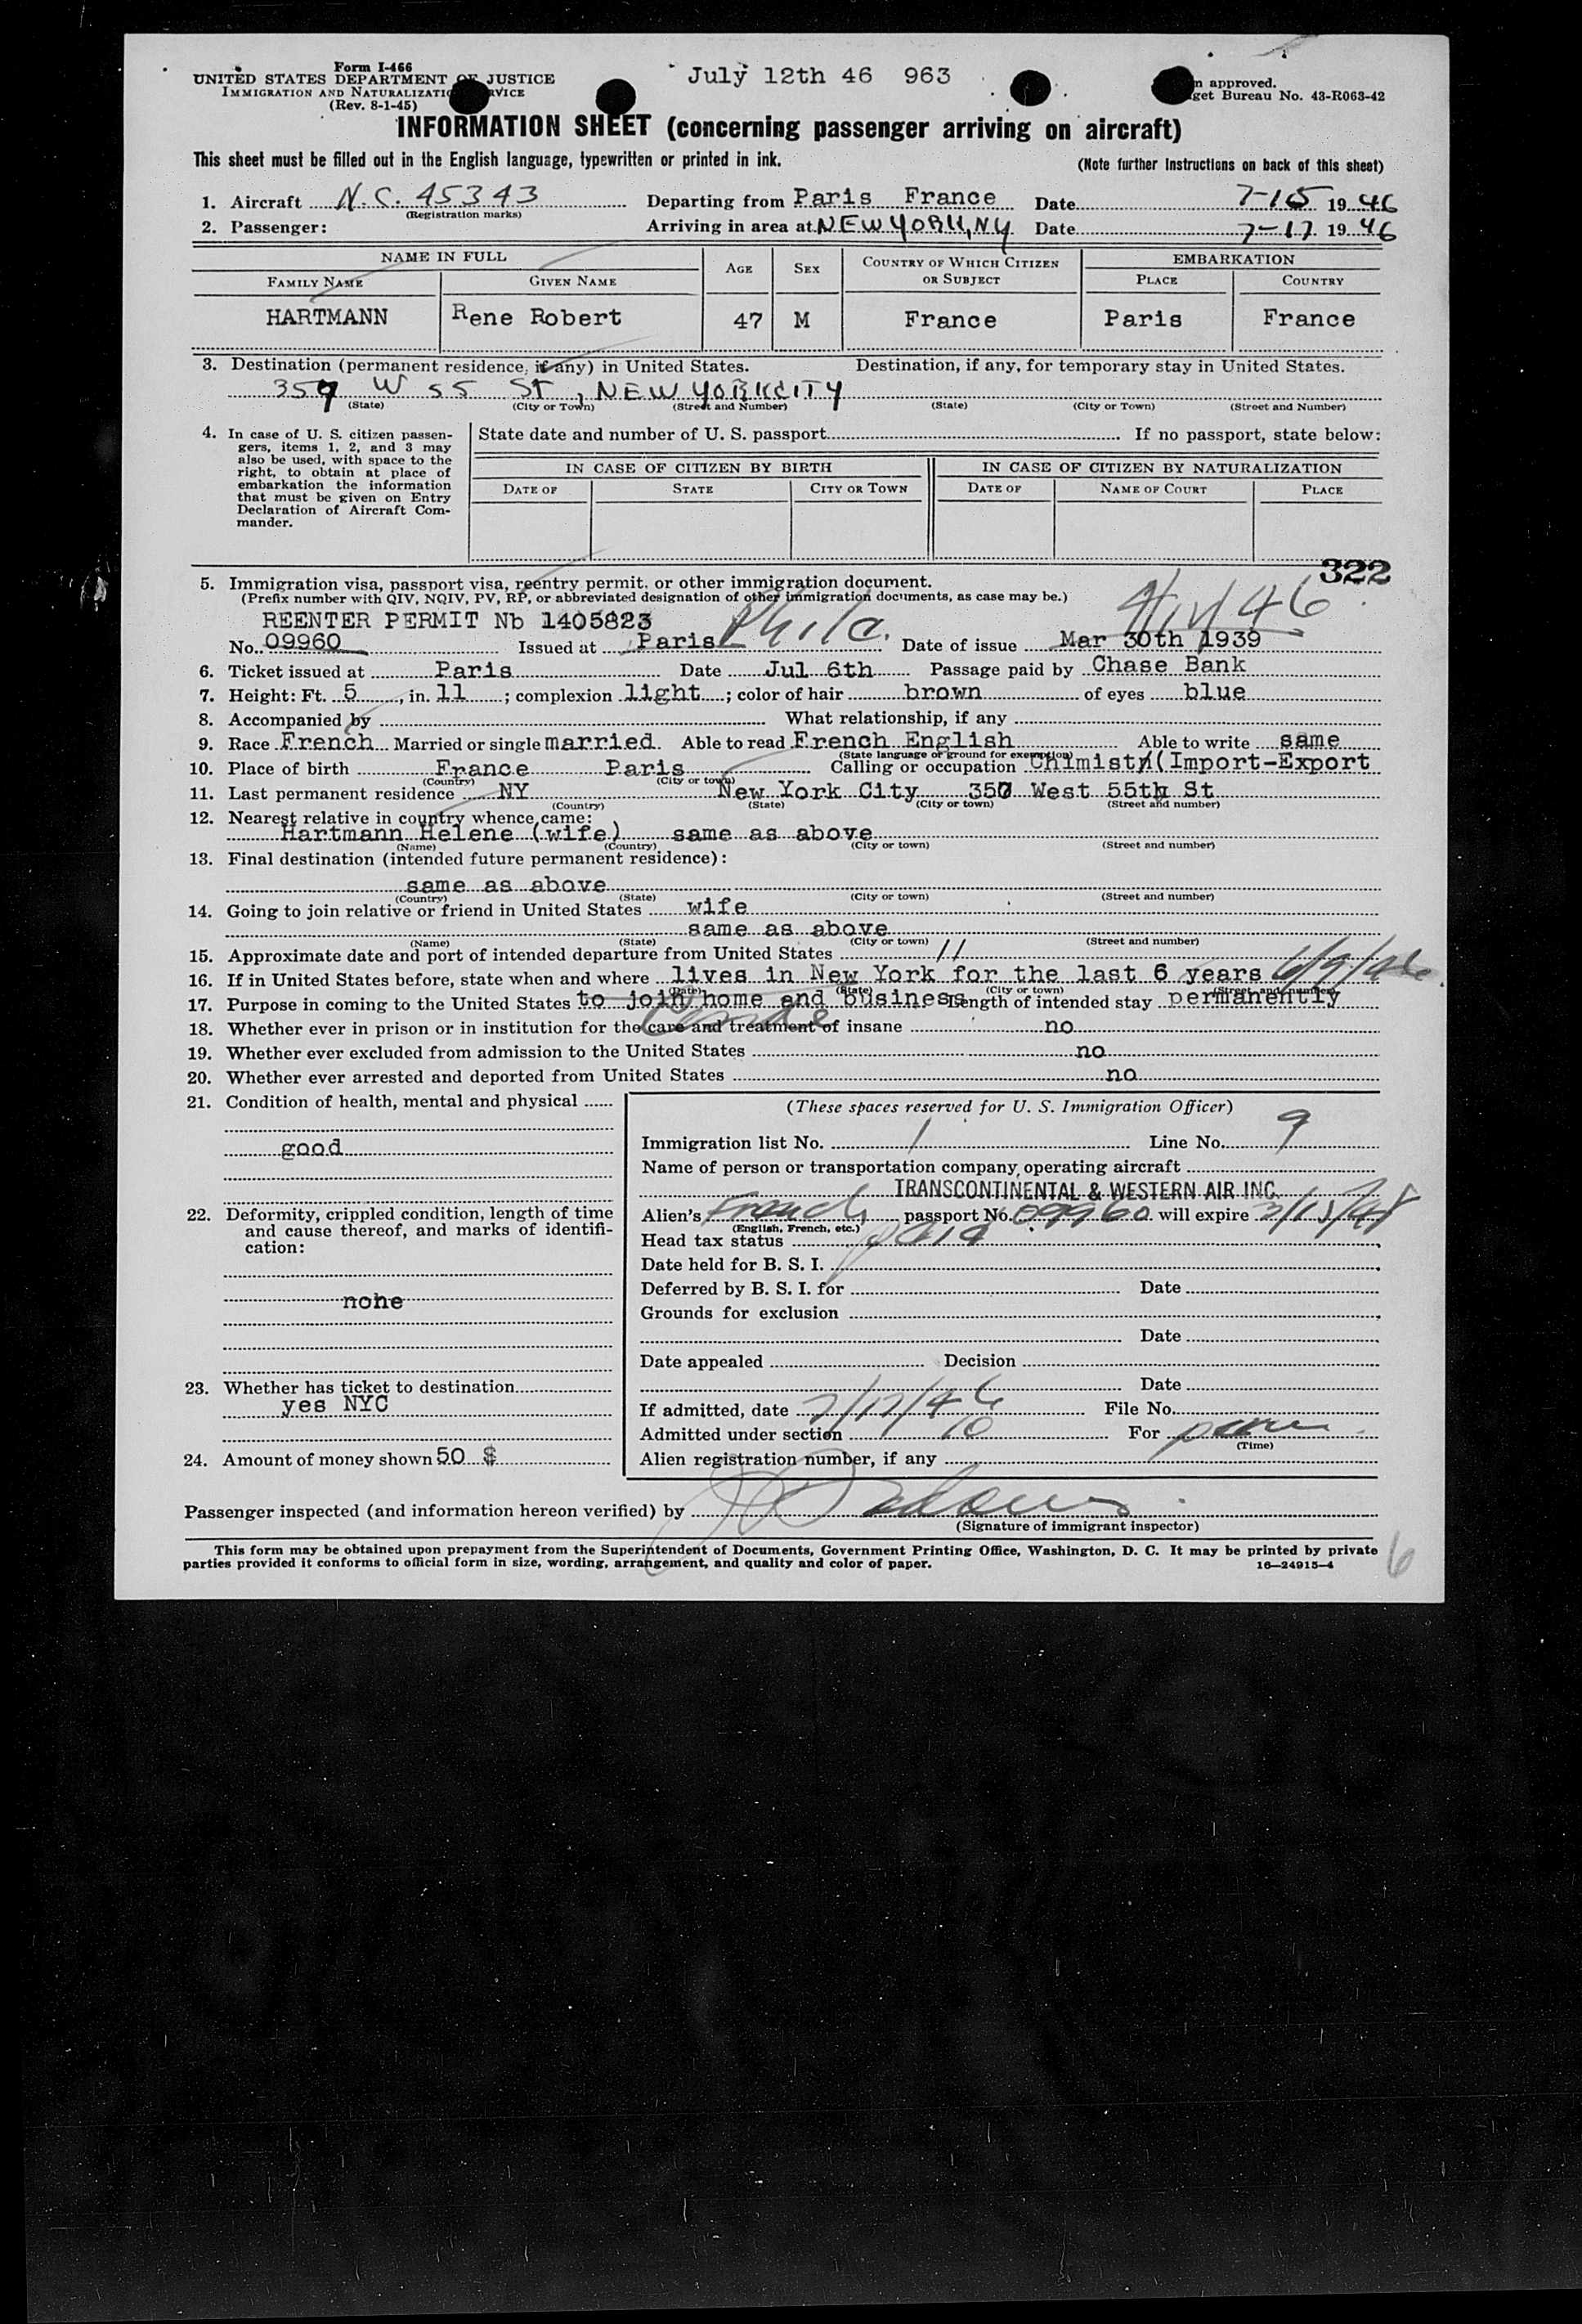 Form I-466
UNITED STATES DEPARTMENT OF JUSTICE
IMMIGRATION AND NATURALIZATION SERVICE
(Rev. 8-1-45)
July 12th 46 963
approved.
get Bureau No. 43-R063-42
INFORMATION SHEET (concerning passenger arriving on aircraft)
This sheet must be filled out in the English language, typewritten or printed in ink.
(Note further instructions on back of this sheet)
1. Aircraft N.C. 45343 Departing from Paris France Date 7-15 1946
(Registration marks)
2. Passenger: Arriving in area at NEW YORK, NY Date 7-17 1946
NAME IN FULL AGE SEX COUNTRY OF WHICH CITIZEN OR SUBJECT EMBARKATION
FAMILY NAME GIVEN NAME PLACE COUNTRY
HARTMANN Rene Robert 47 M France Paris France
3. Destination (permanent residence, if any) in United States. Destination, if any, for temporary stay in United States.
359 W 55 ST, NEW YORK CITY
(State) (City or Town) (Street and Number) (State) (City or Town) (Street and Number)
4. In case of U. S. citizen passengers, items 1, 2, and 3 may also be used, with space to the right, to obtain at place of embarkation the information that must be given on Entry Declaration of Aircraft Commander.
State date and number of U. S. passport If no passport, state below:
IN CASE OF CITIZEN BY BIRTH IN CASE OF CITIZEN BY NATURALIZATION
DATE OF STATE CITY OR TOWN DATE OF NAME OF COURT PLACE
322
5. Immigration visa, passport visa, reentry permit, or other immigration document.
(Prefix number with QIV, NQIV, PV, RP, or abbreviated designation of other immigration documents, as case may be.)
REENTER PERMIT Nb 1405823 Phila.
No. 09960 Issued at Paris Date of issue Mar 30th 1939
6. Ticket issued at Paris Date Jul 6th Passage paid by Chase Bank
7. Height: Ft. 5, in. 11; complexion light; color of hair brown of eyes blue
8. Accompanied by What relationship, if any
9. Race French Married or single married. Able to read French English Able to write same
(State language or ground for exemption)
10. Place of birth France Paris Calling or occupation Chimist (Import-Export
(Country) (City or town)
11. Last permanent residence NY New York City 357 West 55th St
(Country) (State) (City or town) (Street and number)
12. Nearest relative in country whence came:
Hartmann Helene (wife) same as above
(Name) (Country) (City or town) (Street and number)
13. Final destination (intended future permanent residence):
same as above
(Country) (State) (City or town) (Street and number)
14. Going to join relative or friend in United States wife
same as above
(Name) (State) (City or town) (Street and number)
15. Approximate date and port of intended departure from United States
16. If in United States before, state when and where lives in New York for the last 6 years
(Date) (State) (City or town) (Street and number)
17. Purpose in coming to the United States to join home and business Length of intended stay permanently
18. Whether ever in prison or in institution for the care and treatment of insane no
19. Whether ever excluded from admission to the United States no
20. Whether ever arrested and deported from United States no
21. Condition of health, mental and physical
good
22. Deformity, crippled condition, length of time and cause thereof, and marks of identification:
none
23. Whether has ticket to destination
yes NYC
24. Amount of money shown 50 $
(These spaces reserved for U. S. Immigration Officer)
Immigration list No. 1 Line No. 9
Name of person or transportation company operating aircraft
TRANSCONTINENTAL & WESTERN AIR INC.
Alien's French passport No. 09960 will expire
(English, French, etc.)
Head tax status paid
Date held for B. S. I.
Deferred by B. S. I. for Date
Grounds for exclusion
Date
Date appealed Decision
Date
If admitted, date 7/17/46 File No.
Admitted under section 10 For perm
(Time)
Alien registration number, if any
Passenger inspected (and information hereon verified) by
(Signature of immigrant inspector)
This form may be obtained upon prepayment from the Superintendent of Documents, Government Printing Office, Washington, D. C. It may be printed by private
parties provided it conforms to official form in size, wording, arrangement, and quality and color of paper. 16—24915-4
6